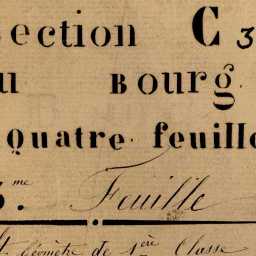 ection C 3
u Bourg
Quatre feuille
3.me Feuille
t géomètre de 1ère Classe